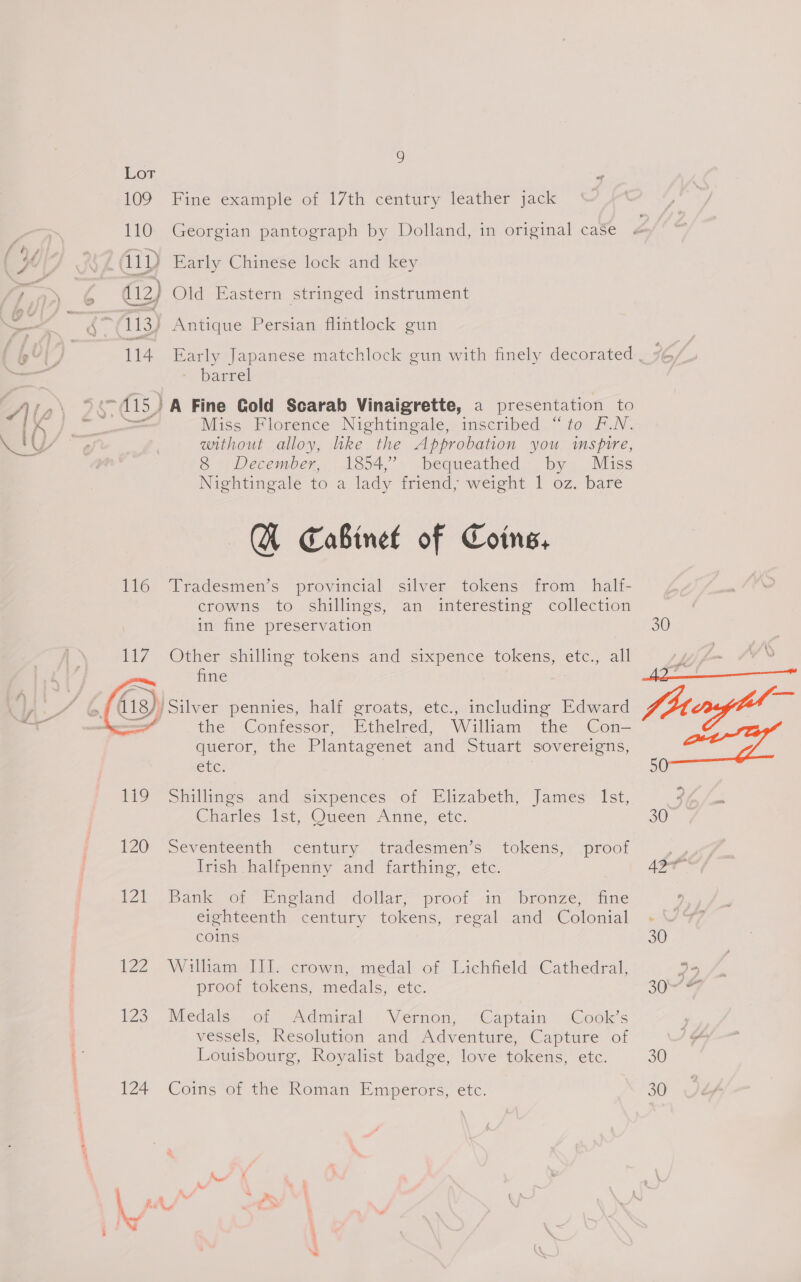 9
Lot
109 Fine example of 17th century leather jack
110 Georgian pantograph by Dolland, in original case
111 Early Chinese lock and key
112 Old Eastern stringed instrument
113 Antique Persian flintlock gun
114 Early Japanese matchlock gun with finely decorated
barrel
115 A Fine Gold Scarab Vinaigrette, a presentation to
Miss Florence Nightingale, inscribed “to F.N.
without alloy, like the Approbation you inspire,
8 December, 1854,” bequeathed by Miss
Nightingale to a lady friend; weight 1 oz. bare
A Cabinet of Coins.
116 Tradesmen’s provincial silver tokens from half-
crowns to shillings, an interesting collection
in fine preservation 30
117 Other shilling tokens and sixpence tokens, etc., all
fine 42
118 Silver pennies, half groats, etc., including Edward
the Confessor, Ethelred, William the Con-
queror, the Plantagenet and Stuart sovereigns,
etc. 50
119 Shillings and sixpences of Elizabeth, James 1st,
Charles 1st, Queen Anne, etc. 30
120 Seventeenth century tradesmen’s tokens, proof
Irish halfpenny and farthing, etc. 42
121 Bank of England dollar, proof in bronze, fine
eighteenth century tokens, regal and Colonial
coins 30
122 William III. crown, medal of Lichfield Cathedral,
proof tokens, medals, etc. 30
123 Medals of Admiral Vernon, Captain Cook’s
vessels, Resolution and Adventure, Capture of
Louisbourg, Royalist badge, love tokens, etc. 30
124 Coins of the Roman Emperors, etc. 30